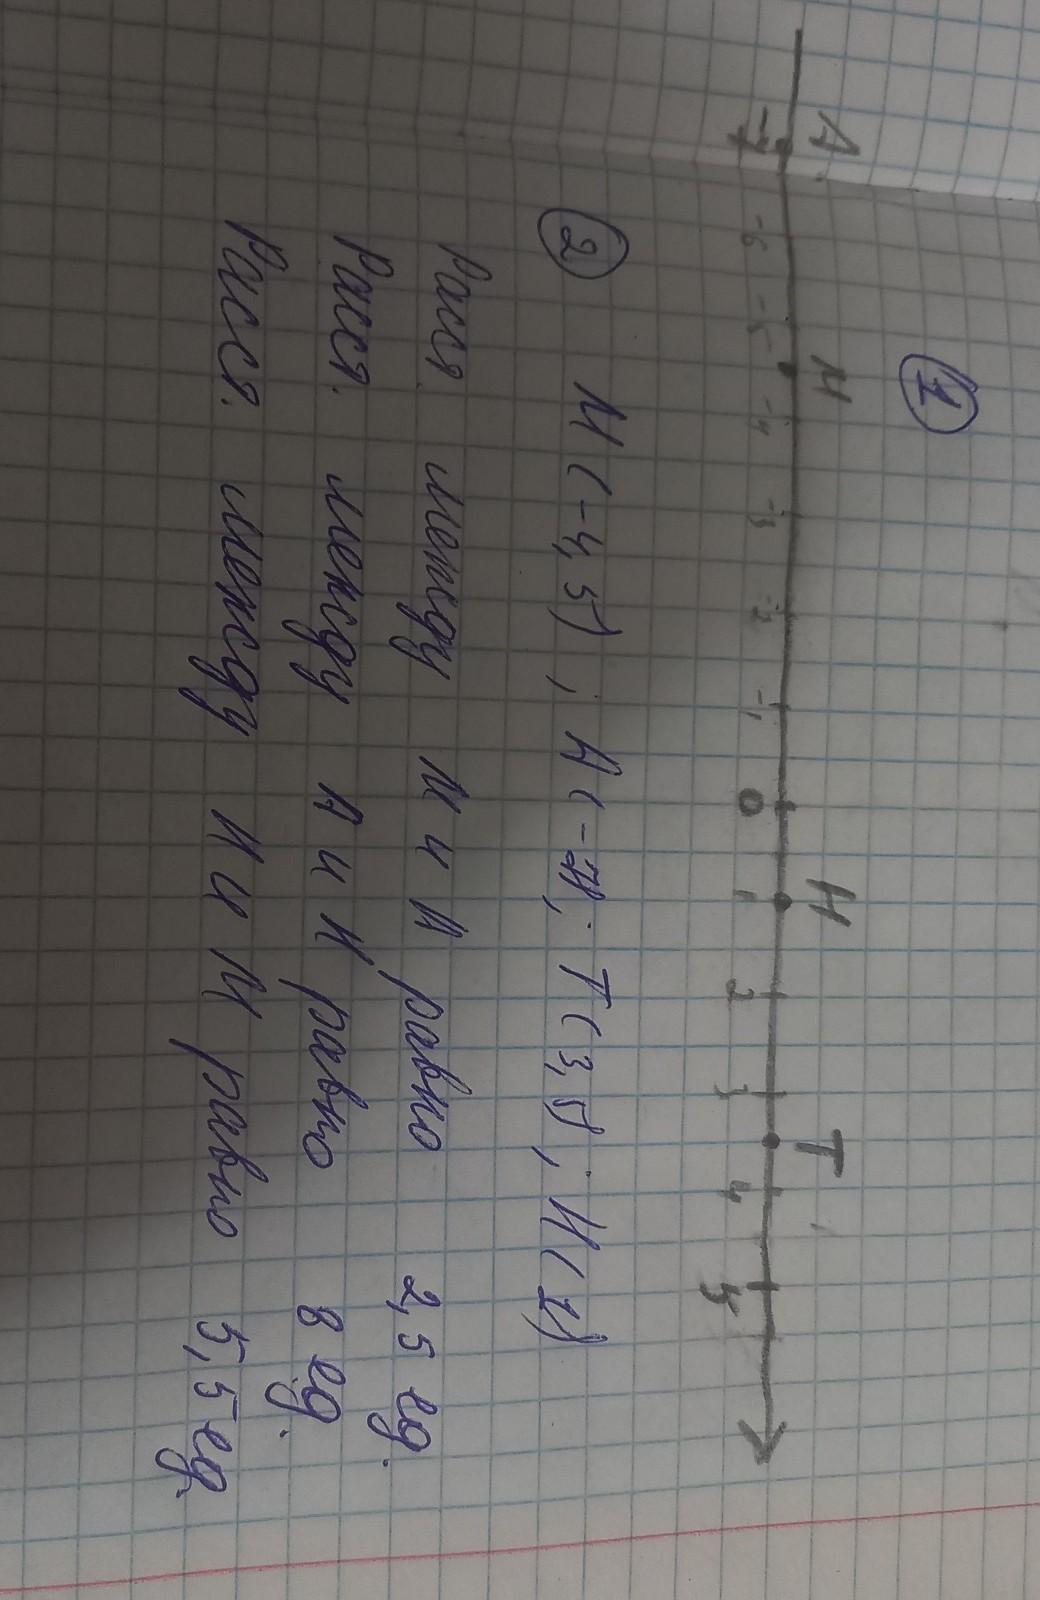 1
А М Н Т
-7 -6 -5 -4 -3 -2 -1 0 1 2 3 4 5
2 М (-4,5) ; А (-7) ; Т (3,5) ; Н (1)
Расст. между М и А равно 2,5 ед.
Расст. между А и Н равно 8 ед.
Расст. между Н и М равно 5,5 ед.